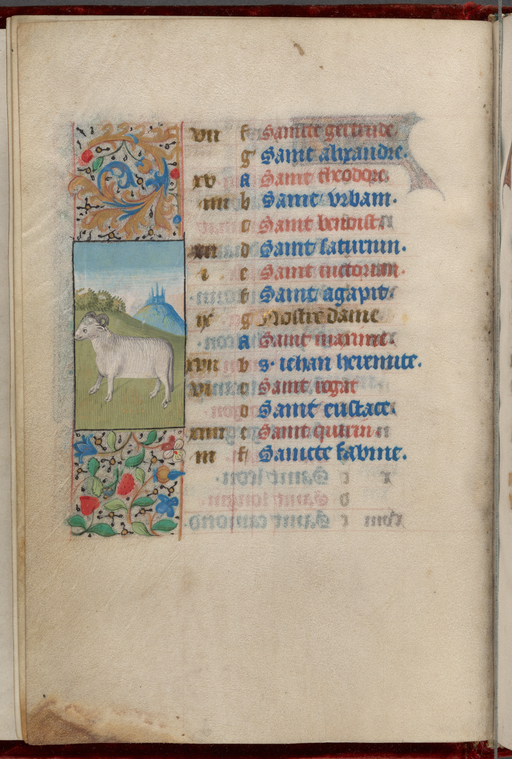 vii f Saincte gertrude.
g Saint alixandre.
xv A Saint theodore.
iiii b Saint vrbain.
c Saint benoist.
xii d Saint saturnin.
i e Saint victorian.
f Saint agapit.
ix g Nostre dame
A Saint maxime.
xvii b s. iehan heremite.
vi c Saint rogat
d Saint eustace.
xiiii e Saint quirin.
iii f Saincte sabine.